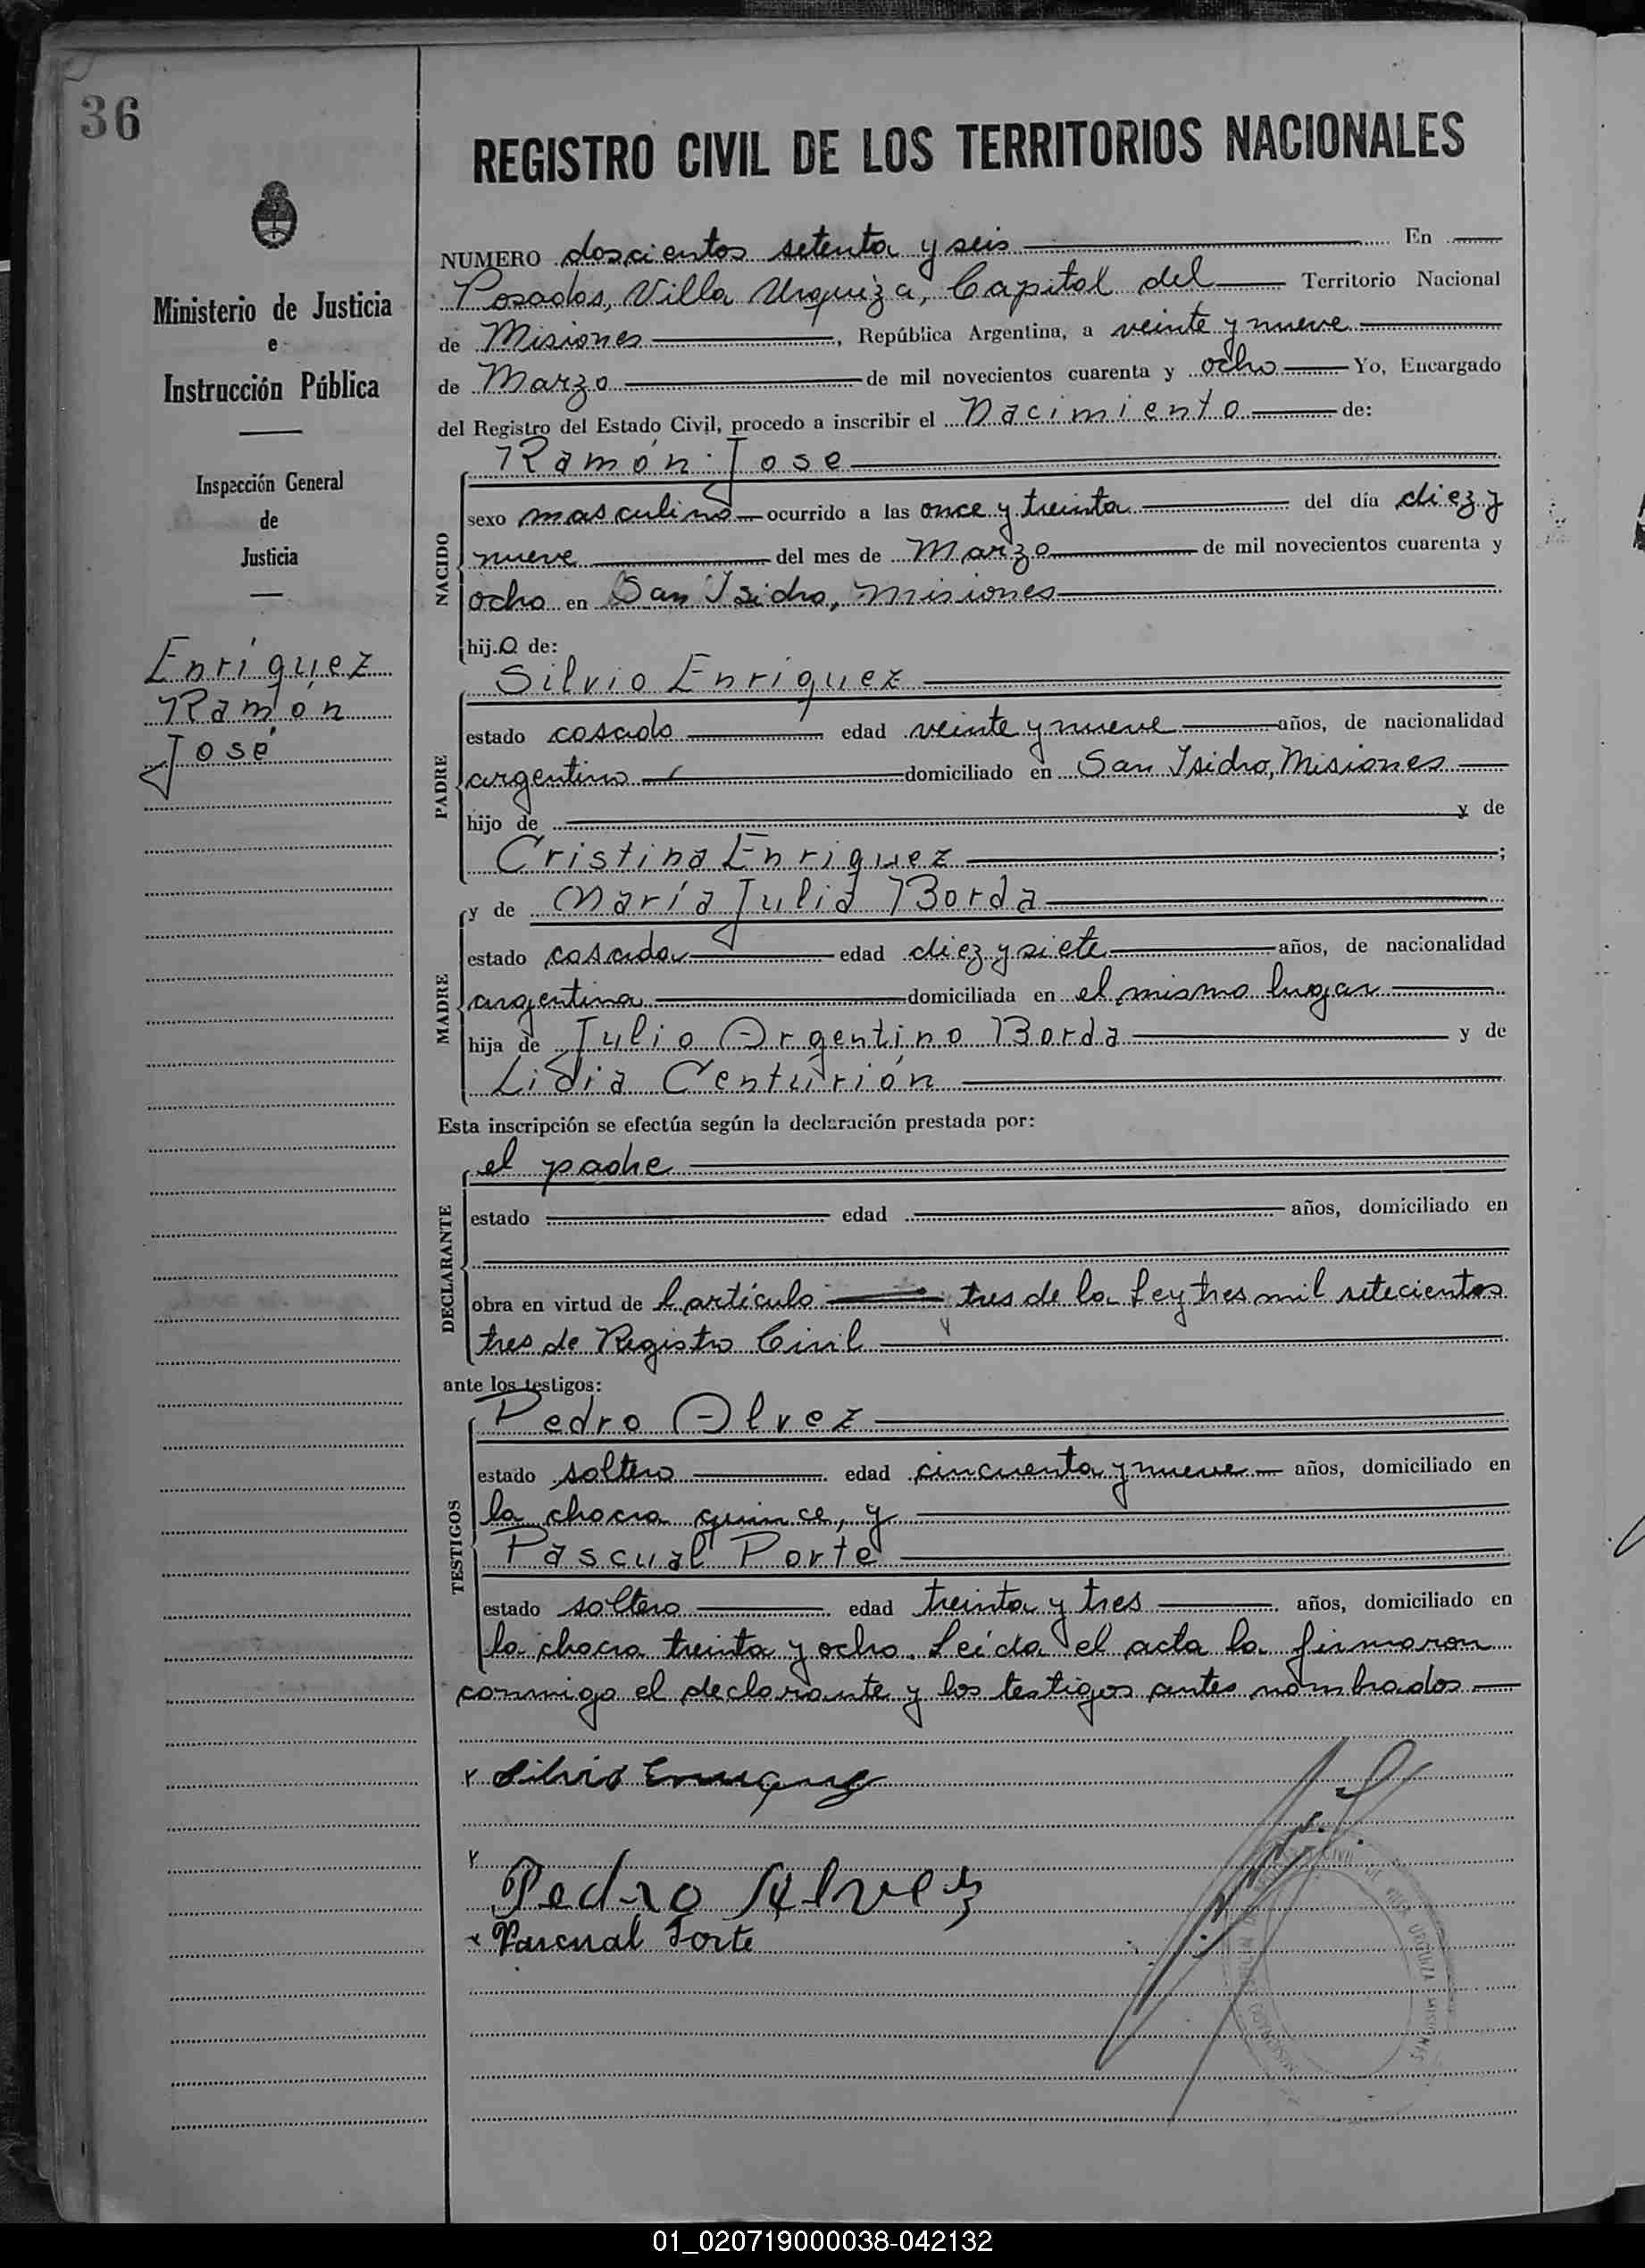 36
REGISTRO CIVIL DE LOS TERRITORIOS NACIONALES
Ministerio de Justicia
e
Instrucción Pública
Inspección General
de
Justicia
Enríquez
Ramón
José
NUMERO doscientos setenta y seis En
Posadas, Villa Urquiza, Capital del Territorio Nacional
de Misiones, República Argentina, a veinte y nueve
de Marzo de mil novecientos cuarenta y ocho Yo, Encargado
del Registro del Estado Civil, procedo a inscribir el Nacimiento de:
Ramón Jose
NACIDO
sexo masculino ocurrido a las once y treinta del día diez y
nueve del mes de Marzo de mil novecientos cuarenta y
ocho en San Isidro, Misiones
hijo de:
Silvio Enríquez
PADRE
estado casado edad veinte y nueve años, de nacionalidad
argentino domiciliado en San Isidro, Misiones
hijo de y de
Cristina Enriquez;
y de María Julia Borda
MADRE
estado casada edad diez y siete años, de nacionalidad
argentina domiciliada en el mismo lugar
hija de Julio Argentino Borda y de
Lidia Centurión
Esta inscripción se efectúa según la declaración prestada por:
el padre
DECLARANTE
estado edad años, domiciliado en
obra en virtud de l artículo tres de la Ley tres mil setecientos
tres de Registro Civil
ante los testigos:
Pedro Alvez
TESTIGOS
estado soltero edad cincuenta y nueve años, domiciliado en
la chacra quince, y
Pascual Porte
estado soltero edad treinta y tres años, domiciliado en
la chacra treinta y ocho. Leída el acta la firmaron
conmigo el declarante y los testigos antes nombrados
Silvio Enriquez
Pedro Alvez
Pascual Forte
URQUIZA MISIONES
01_020719000038-042132